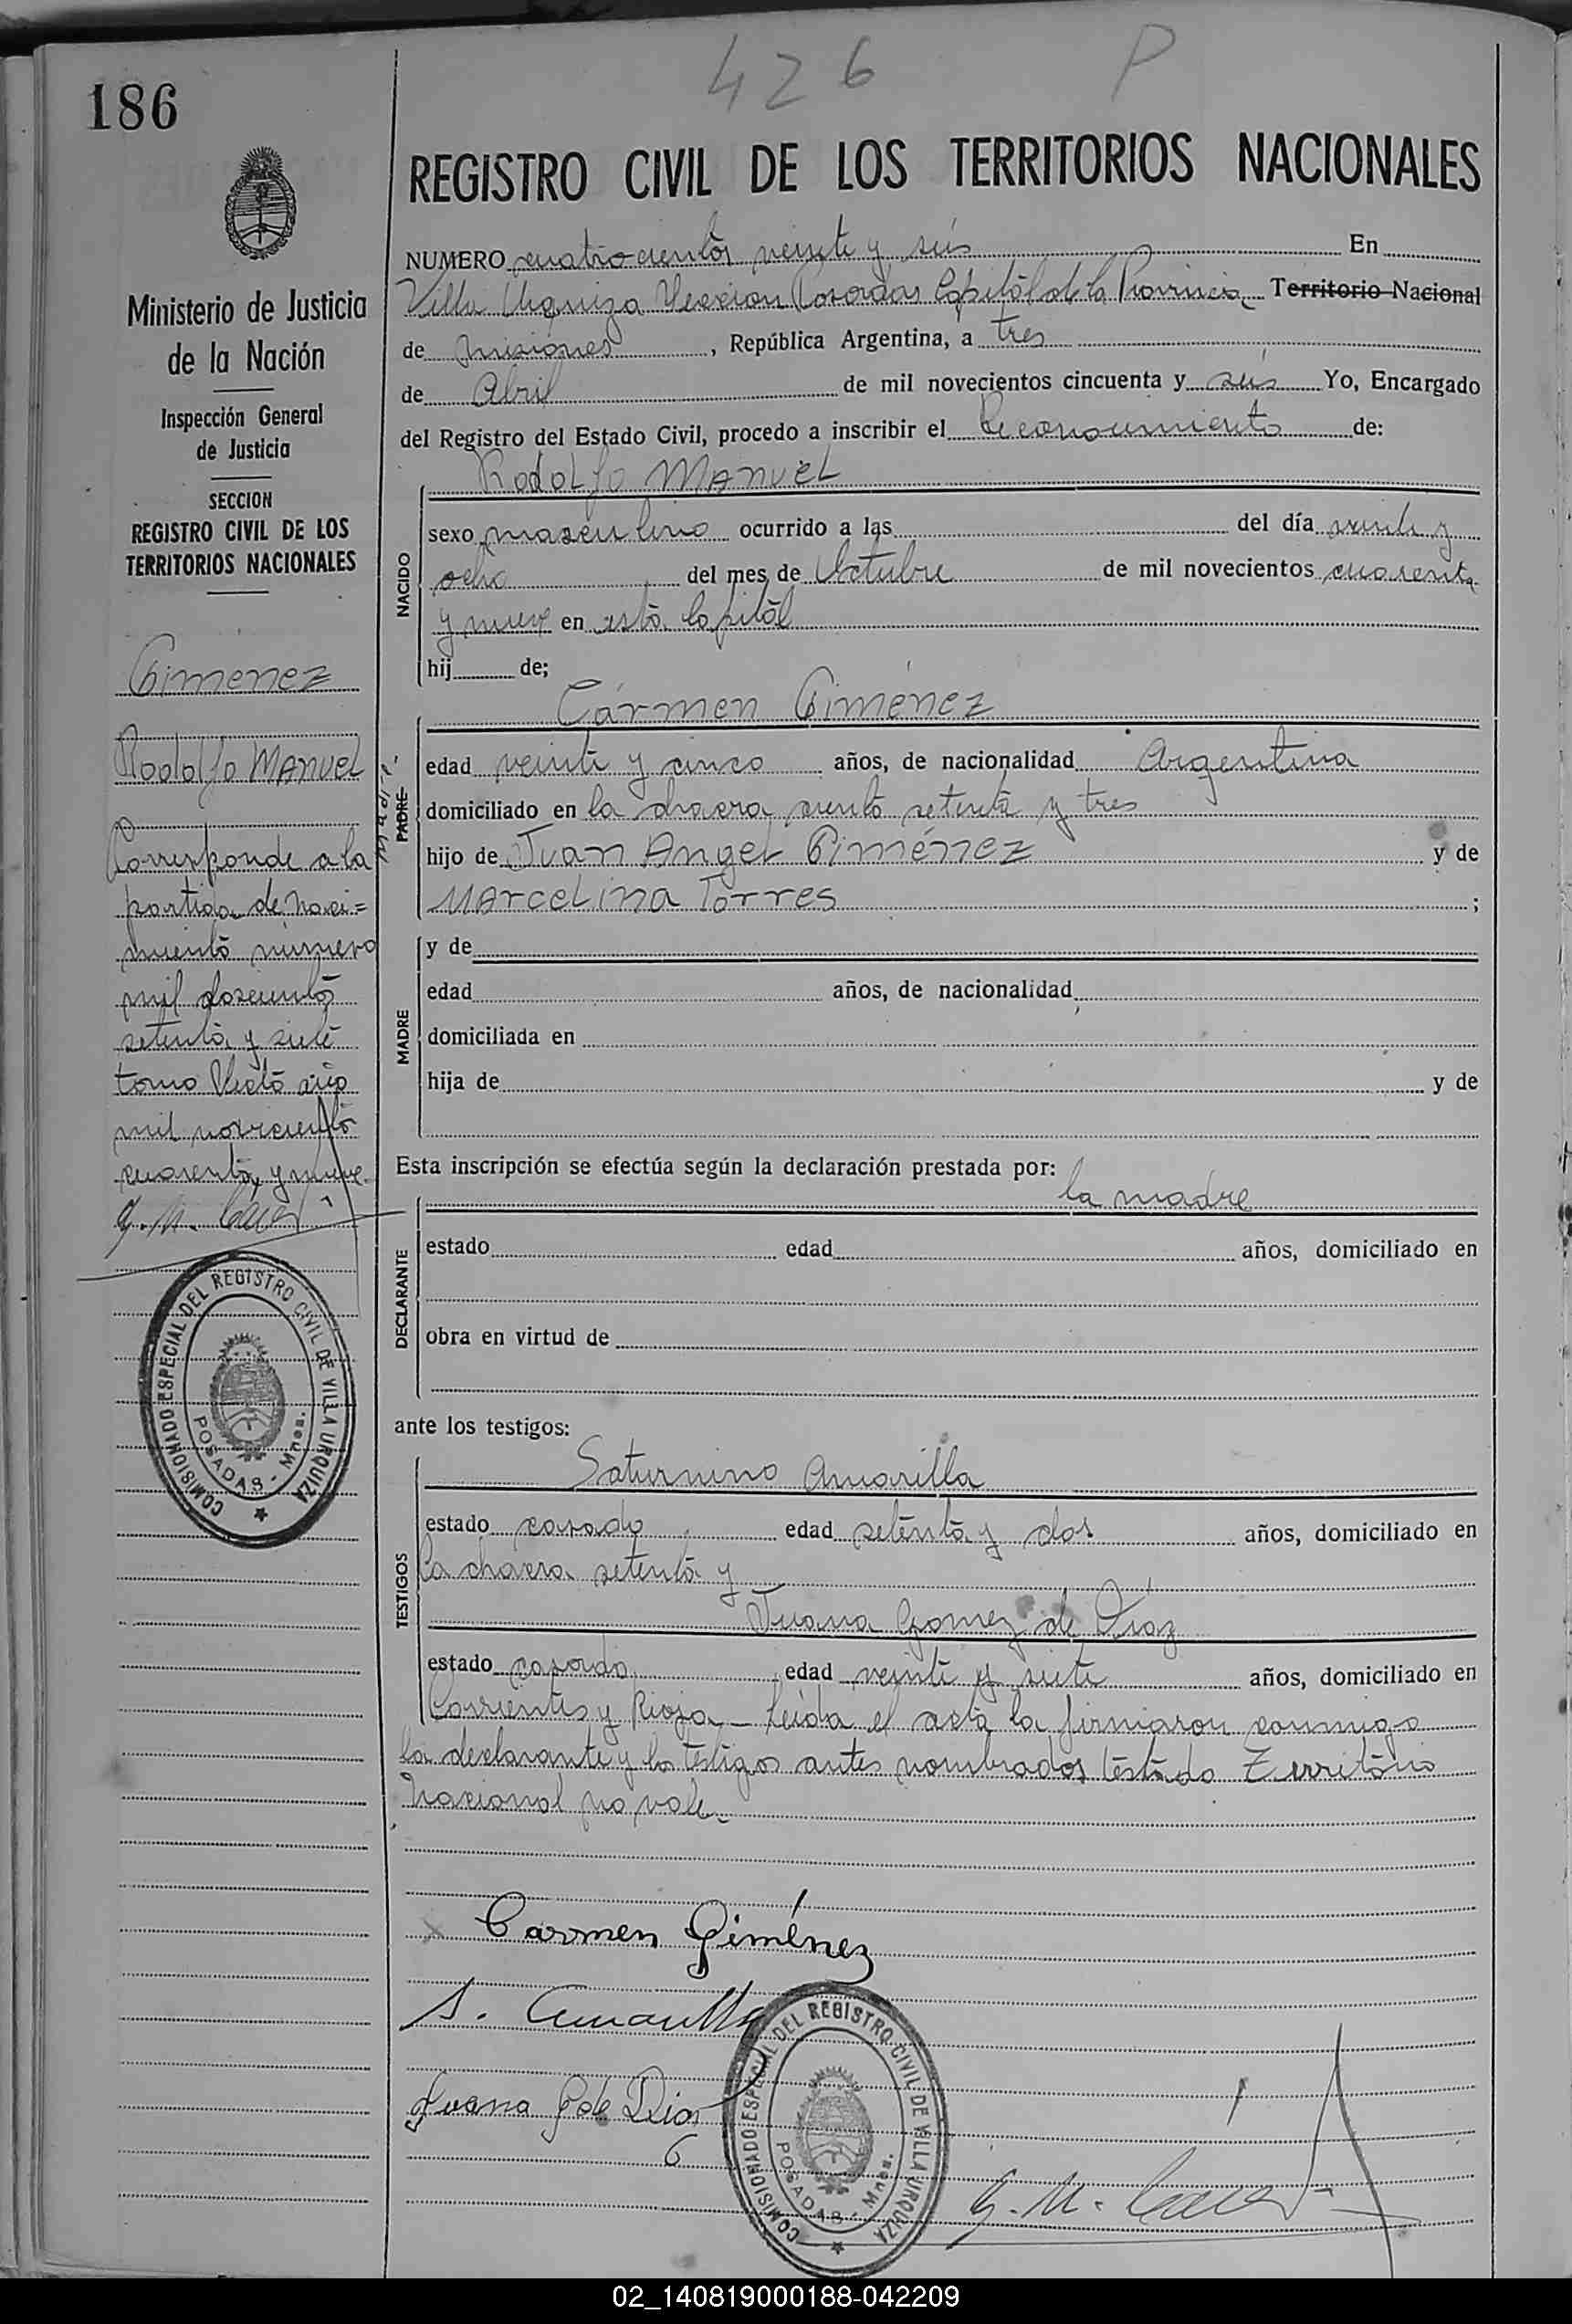 426 P
186
REGISTRO CIVIL DE LOS TERRITORIOS NACIONALES
NUMERO cuatrocientos veinte y seis En
Villa Urquiza Seccion Posadas Capital de la Provincia Territorio Nacional
de Misiones, República Argentina, a tres
de Abril de mil novecientos cincuenta y seis Yo, Encargado
del Registro del Estado Civil, procedo a inscribir el Reconocimiento de:
Rodolfo Manuel
NACIDO
sexo masculino ocurrido a las del día veinte y
ocho del mes de Octubre de mil novecientos cuarenta
y nueve en esta Capital
hij de;
Cármen Giménez
Madre
PADRE
edad veinte y cinco años, de nacionalidad Argentina
domiciliado en la chacra ciento setenta y tres
hijo de Juan Angel Giménez y de
Marcelina Torres ;
MADRE
y de
edad años, de nacionalidad
domiciliada en
hija de y de
Esta inscripción se efectúa según la declaración prestada por:
la madre
DECLARANTE
estado edad años, domiciliado en
obra en virtud de
ante los testigos:
TESTIGOS
Saturnino Amarilla
estado casado edad setenta y dos años, domiciliado en
la chacra setenta y
Juana Gomez de Diaz
estado casada edad veinte y siete años, domiciliado en
Corrientes y Rioja - Leida el acta la firmaron conmigo
la declarante y los testigos antes nombrados testado Territorio
Nacional no vale
Carmen Giménez
S. Amarilla
Juana G de Dias
COMISIONADO ESPECIAL DEL REGISTRO CIVIL DE VILLA URQUIZA
POSADAS - Mnes.
G. M.
Ministerio de Justicia
de la Nación
Inspección General
de Justicia
SECCION
REGISTRO CIVIL DE LOS
TERRITORIOS NACIONALES
Gimenez
Rodolfo Manuel
Corresponde a la
partida de naci=
miento número
mil doscientos
setenta y siete
tomo Sexto año
mil novecientos
cuarenta y nueve.
G. M.
COMISIONADO ESPECIAL DEL REGISTRO CIVIL DE VILLA URQUIZA
POSADAS - Mnes.
02_140819000188-042209